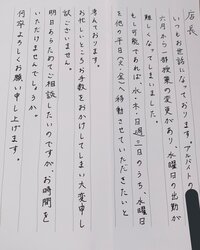 店長
いつもお世話になっております。アルバイトの
六月から一部授業の変更があり、水曜日の出勤が
難しくなってしまいました。
もし可能であれば、水・木・日週三日のうち、水曜日
を他の平日(火・金)へ移動させていただきたいと
考えております。
お忙しいところお手数をおかけしてしまい大変申し
訳ございません。
明日あらためてご相談したいのですが、お時間を
いただけませんでしょうか。
何卒よろしくお願い申し上げます。